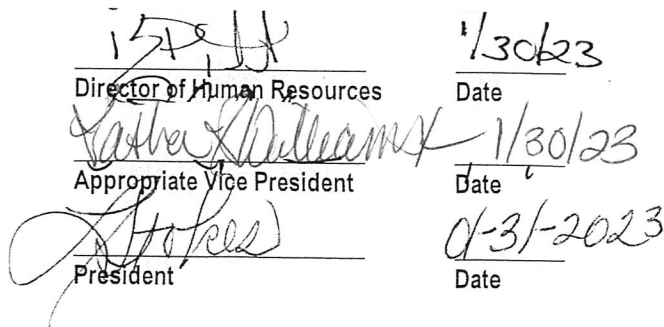 1/30/23
Director of Human Resources Date
Williams 1/30/23
Appropriate Vice President Date
Stokes 01-31-2023
President Date